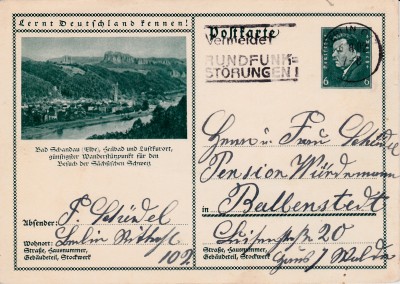 Lernt Deutschland kennen!
Bad Schandau (Elbe), Heilbad und Luftkurort,
günstigster Wanderstützpunkt für den
Besuch der Sächsischen Schweiz
Absender: F. Schüdel
Wohnort: Berlin
Straße, Hausnummer,
Gebäudeteil, Stockwerk
102
Postkarte
Vermeidet
RUNDFUNK=
STÖRUNGEN!
6 6
Herrn u Frau
Pension
in Ballenstedt
20
Straße, Hausnummer,
Gebäudeteil, Stockwerk